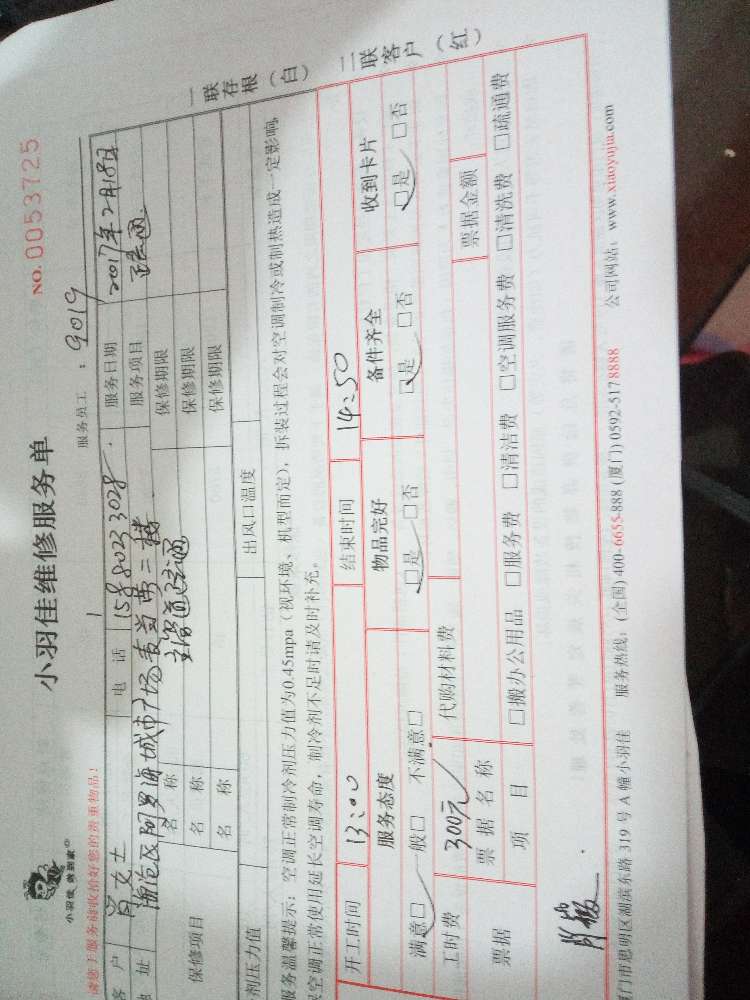 小羽佳维修服务单
NO.0053725
小羽佳 做到家
请您于服务前收拾好您的贵重物品!
服务员工：9019
客 户 肖女士 电 话 15880233028 服务日期 2017年2月18日
地 址 海沧区阿罗海城市广场 二楼 服务项目
保修项目 名 称 主渠道疏通 保修期限
名 称 保修期限
名 称 保修期限
剂压力值 出风口温度
服务温馨提示：空调正常制冷剂压力值为0.45mpa（视环境、机型而定），拆装过程会对空调制冷或制热造成一定影响，
空调正常使用延长空调寿命，制冷剂不足时请及时补充。
一联存根（白）
二联客户（红）
开工时间 13:00 结束时间 14:50
服务态度 物品完好 备件齐全 收到卡片
满意□ 一般□ 不满意□ □是 □否 □是 □否 □是 □否
工时费 300元 代购材料费
票据 票 据 名 称 票据金额
项 目 □搬办公用品 □服务费 □清洁费 □空调服务费 □清洗费 □疏通费
门市思明区湖滨东路 319 号 A 幢小羽佳 服务热线：(全国) 400-6655-888 (厦门) 0592-5178888 公司网站：www.xiaoyujia.com